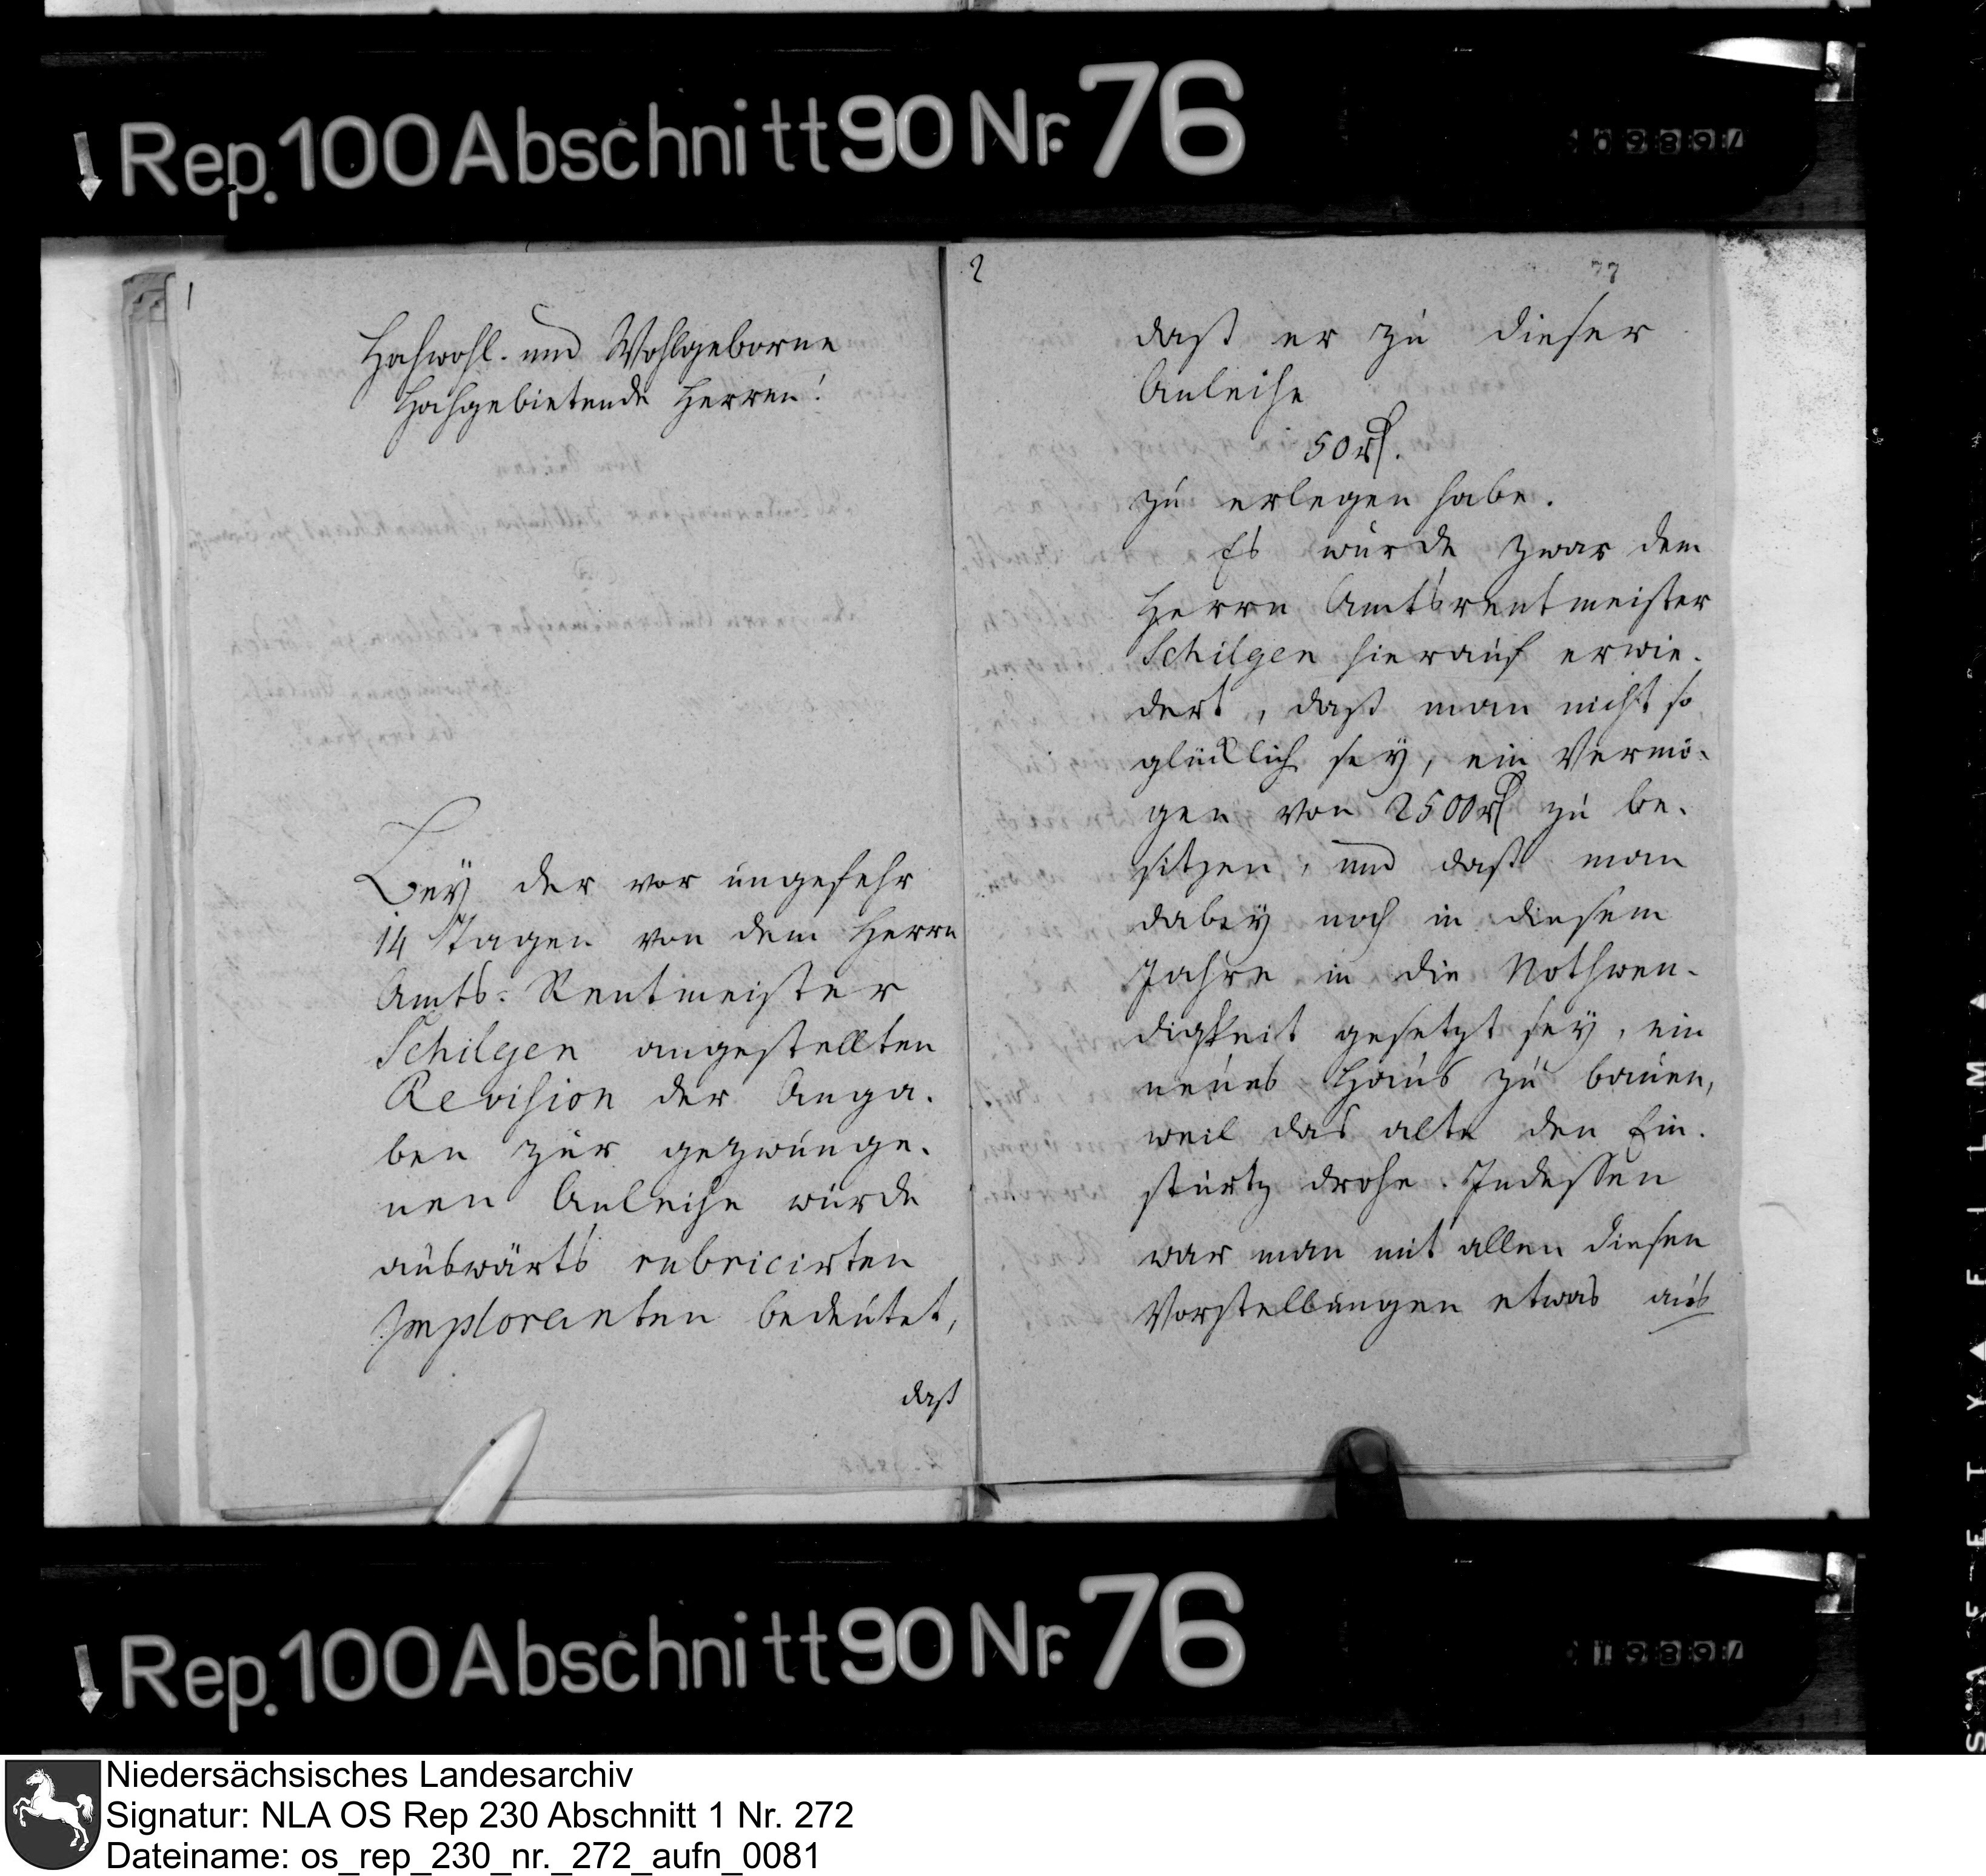 Rep. 100 Abschnitt 90 Nr. 76
1
Hochwohl- und Wohlgeborne
Hochgebietende Herren!
Bey der vor ungefehr
14 Tagen von dem Herrn
Amts-Rentmeister
Schilgen angestellten
Revision der Anga-
ben zur gezwunge-
nen Anleihe wurde
auswärts rubricirten
Imploranten bedeutet,
daß
2
77
daß er zu dieser
Anleihe
50 rt.
zu erlegen habe.
Es wurde zwar dem
Herrn Amtsrentmeister
Schilgen hierauf erwie-
dert, daß man nicht so
glücklich sey, ein Vermö-
gen von 2500 rt zu be-
sitzen, und daß man
dabey noch in diesem
Jahre in die Nothwen-
digkeit gesetzt sey, ein
neues Haus zu bauen,
weil das alte den Ein-
sturtz drohe. Indessen
war man mit allen diesen
Vorstellungen etwas aus
Rep. 100 Abschnitt 90 Nr. 76
SAFETY FILM
Niedersächsisches Landesarchiv
Signatur: NLA OS Rep 230 Abschnitt 1 Nr. 272
Dateiname: os_rep_230_nr._272_aufn_0081